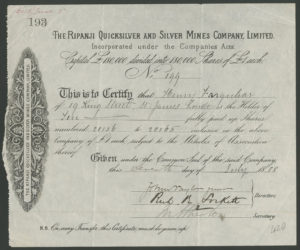 193
THE RIPANJI QUICKSILVER AND SILVER MINES COMPANY, LIMITED.
Incorporated under the Companies Acts
Capital £180,000 divided into 180,000 Shares of £1 each.
No. 199
This is to Certify that Henry Farquhar
of 19 King Street St. James London is the Holder of
Ten fully paid up Shares
numbered 20156 to 20165 inclusive in the above
Company of £1 each subject to the Articles of Association
thereof
Given under the Common Seal of the said Company,
this day of July 1888
Directors
Secretary
N.B. On any Transfer this Certificate must be given up